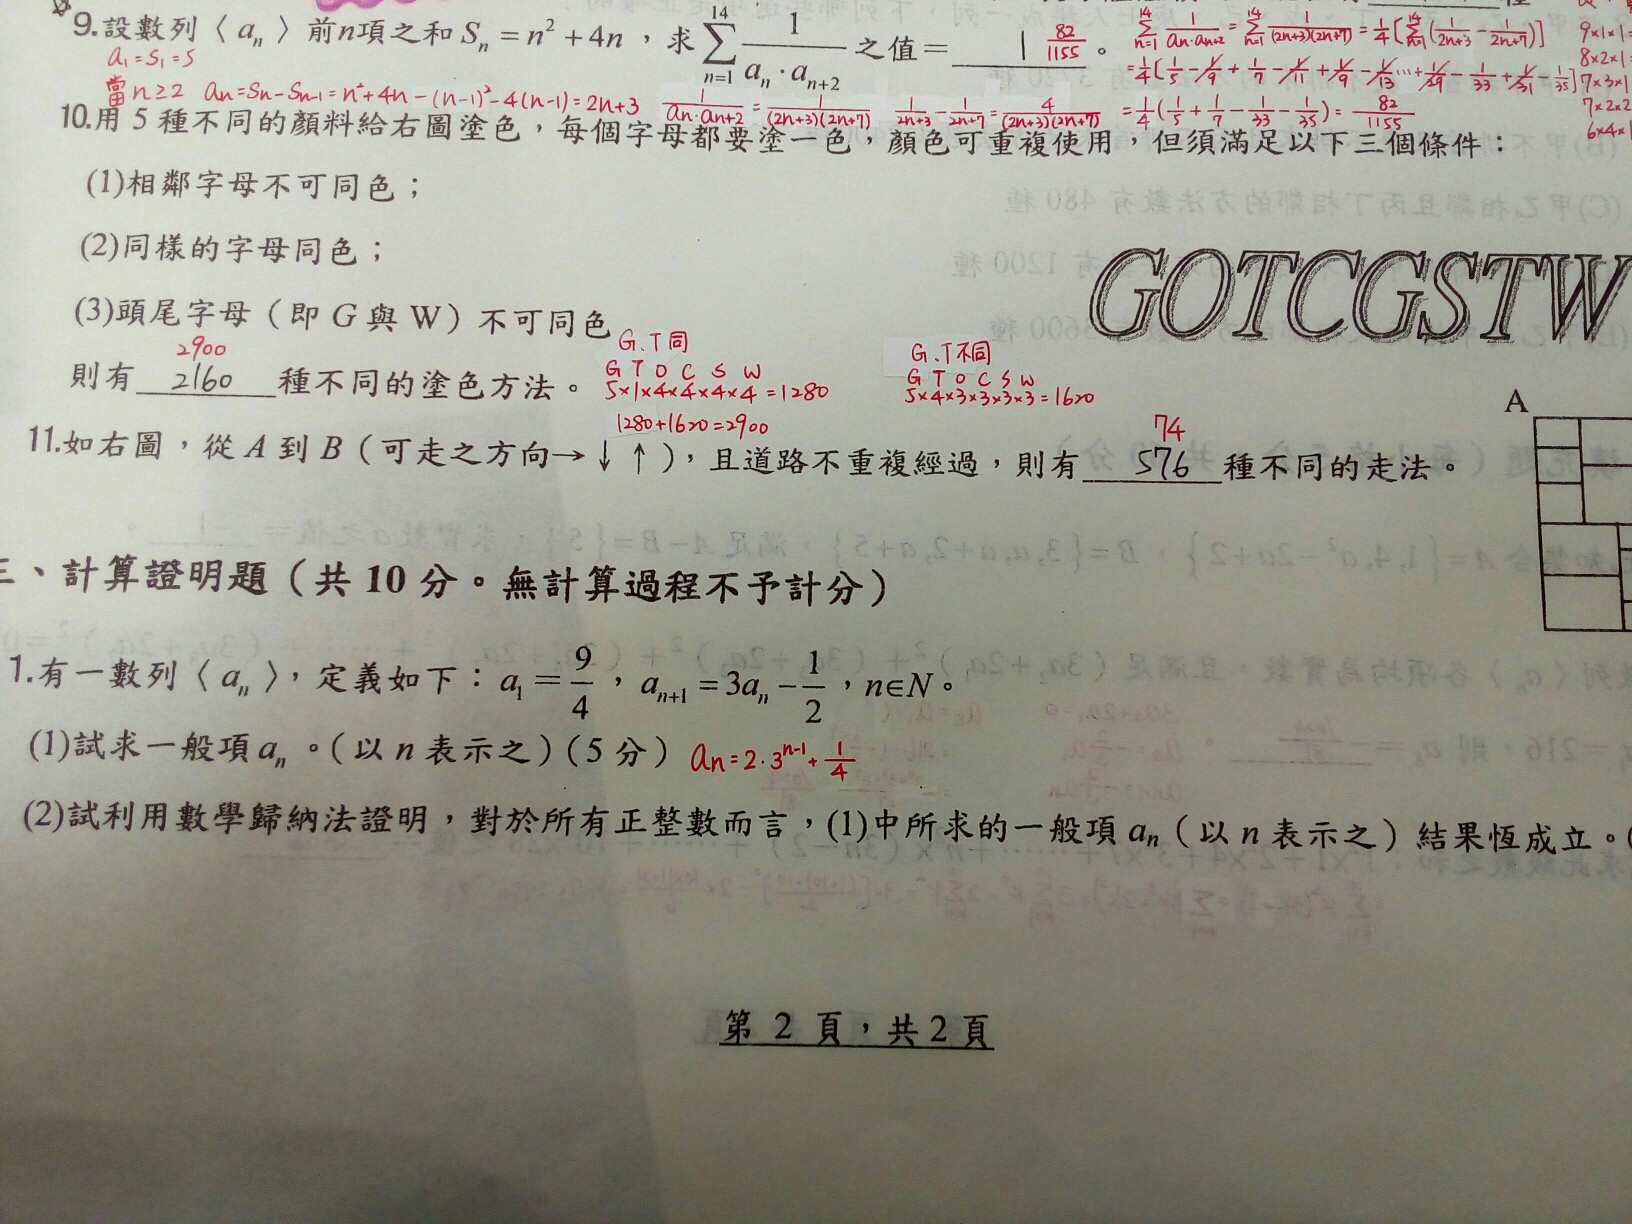 9.設數列〈a_n〉前n項之和 S_n = n² + 4n，求 \sum_{n=1}^{14} \frac{1}{a_n \cdot a_{n+2}} 之值＝ 1 82/1155 。
a₁=S₁=5
當n≥2 an=Sn-Sn-1=n²+4n-(n-1)²-4(n-1)=2n+3 1/(an·an+2)=1/((2n+3)(2n+7)) 1/(2n+3)-1/(2n+7)=4/((2n+3)(2n+7))
\sum_{n=1}^{14} 1/(an·an+2)=\sum_{n=1}^{14} 1/((2n+3)(2n+7))=1/4[\sum_{n=1}^{14}(1/(2n+3)-1/(2n+7))]
=1/4[1/5-1/9+1/7-1/11+1/9-1/13…+1/29-1/33+1/31-1/35]
=1/4(1/5+1/7-1/33-1/35)=82/1155
9×1×1
8×2×1
7×3×1
7×2×2
6×4×1
10.用 5 種不同的顏料給右圖塗色，每個字母都要塗一色，顏色可重複使用，但須滿足以下三個條件：
(1)相鄰字母不可同色；
(2)同樣的字母同色；
(3)頭尾字母（即 G 與 W）不可同色
GOTCGSTW
2900
則有 2160 種不同的塗色方法。
G、T同
G T O C S W
5×1×4×4×4×4=1280
1280+1620=2900
G、T不同
G T O C S W
5×4×3×3×3×3=1620
11.如右圖，從 A 到 B（可走之方向→↓↑），且道路不重複經過，則有 576 種不同的走法。
74
A
三、計算證明題（共 10 分。無計算過程不予計分）
1.有一數列〈a_n〉，定義如下：a₁ = 9/4，a_{n+1} = 3a_n − 1/2，n∈N。
(1)試求一般項 a_n 。（以 n 表示之）（5 分） an=2·3^{n-1}+1/4
(2)試利用數學歸納法證明，對於所有正整數而言，(1)中所求的一般項 a_n（以 n 表示之）結果恆成立。(
第 2 頁，共 2 頁